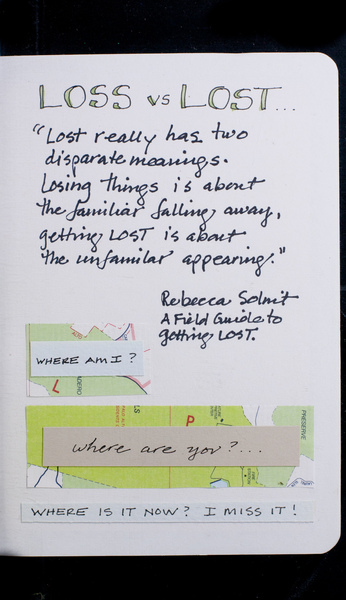 LOSS vs LOST...
"Lost really has two
disparate meanings.
Losing things is about
the familiar falling away,
getting LOST is about
the unfamilar appearing."
Rebecca Solnit
A Field Guide to
getting LOST.
WHERE AM I?
L
LS
P
PRESERVE
where are you?...
WHERE IS IT NOW? I MISS IT!